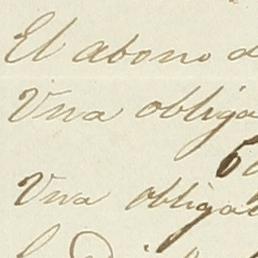 El abono d
Una obliga
6
Una obligac